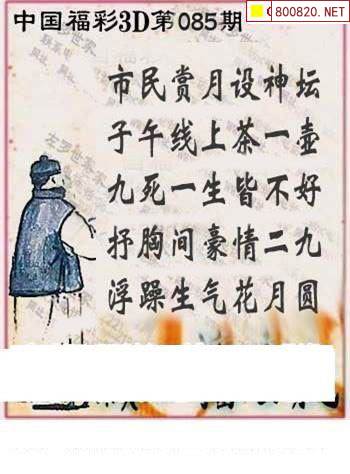 中国福彩3D第085期
800820.NET
市民赏月设神坛
子午线上茶一壶
九死一生皆不好
抒胸间豪情二九
浮躁生气花月圆